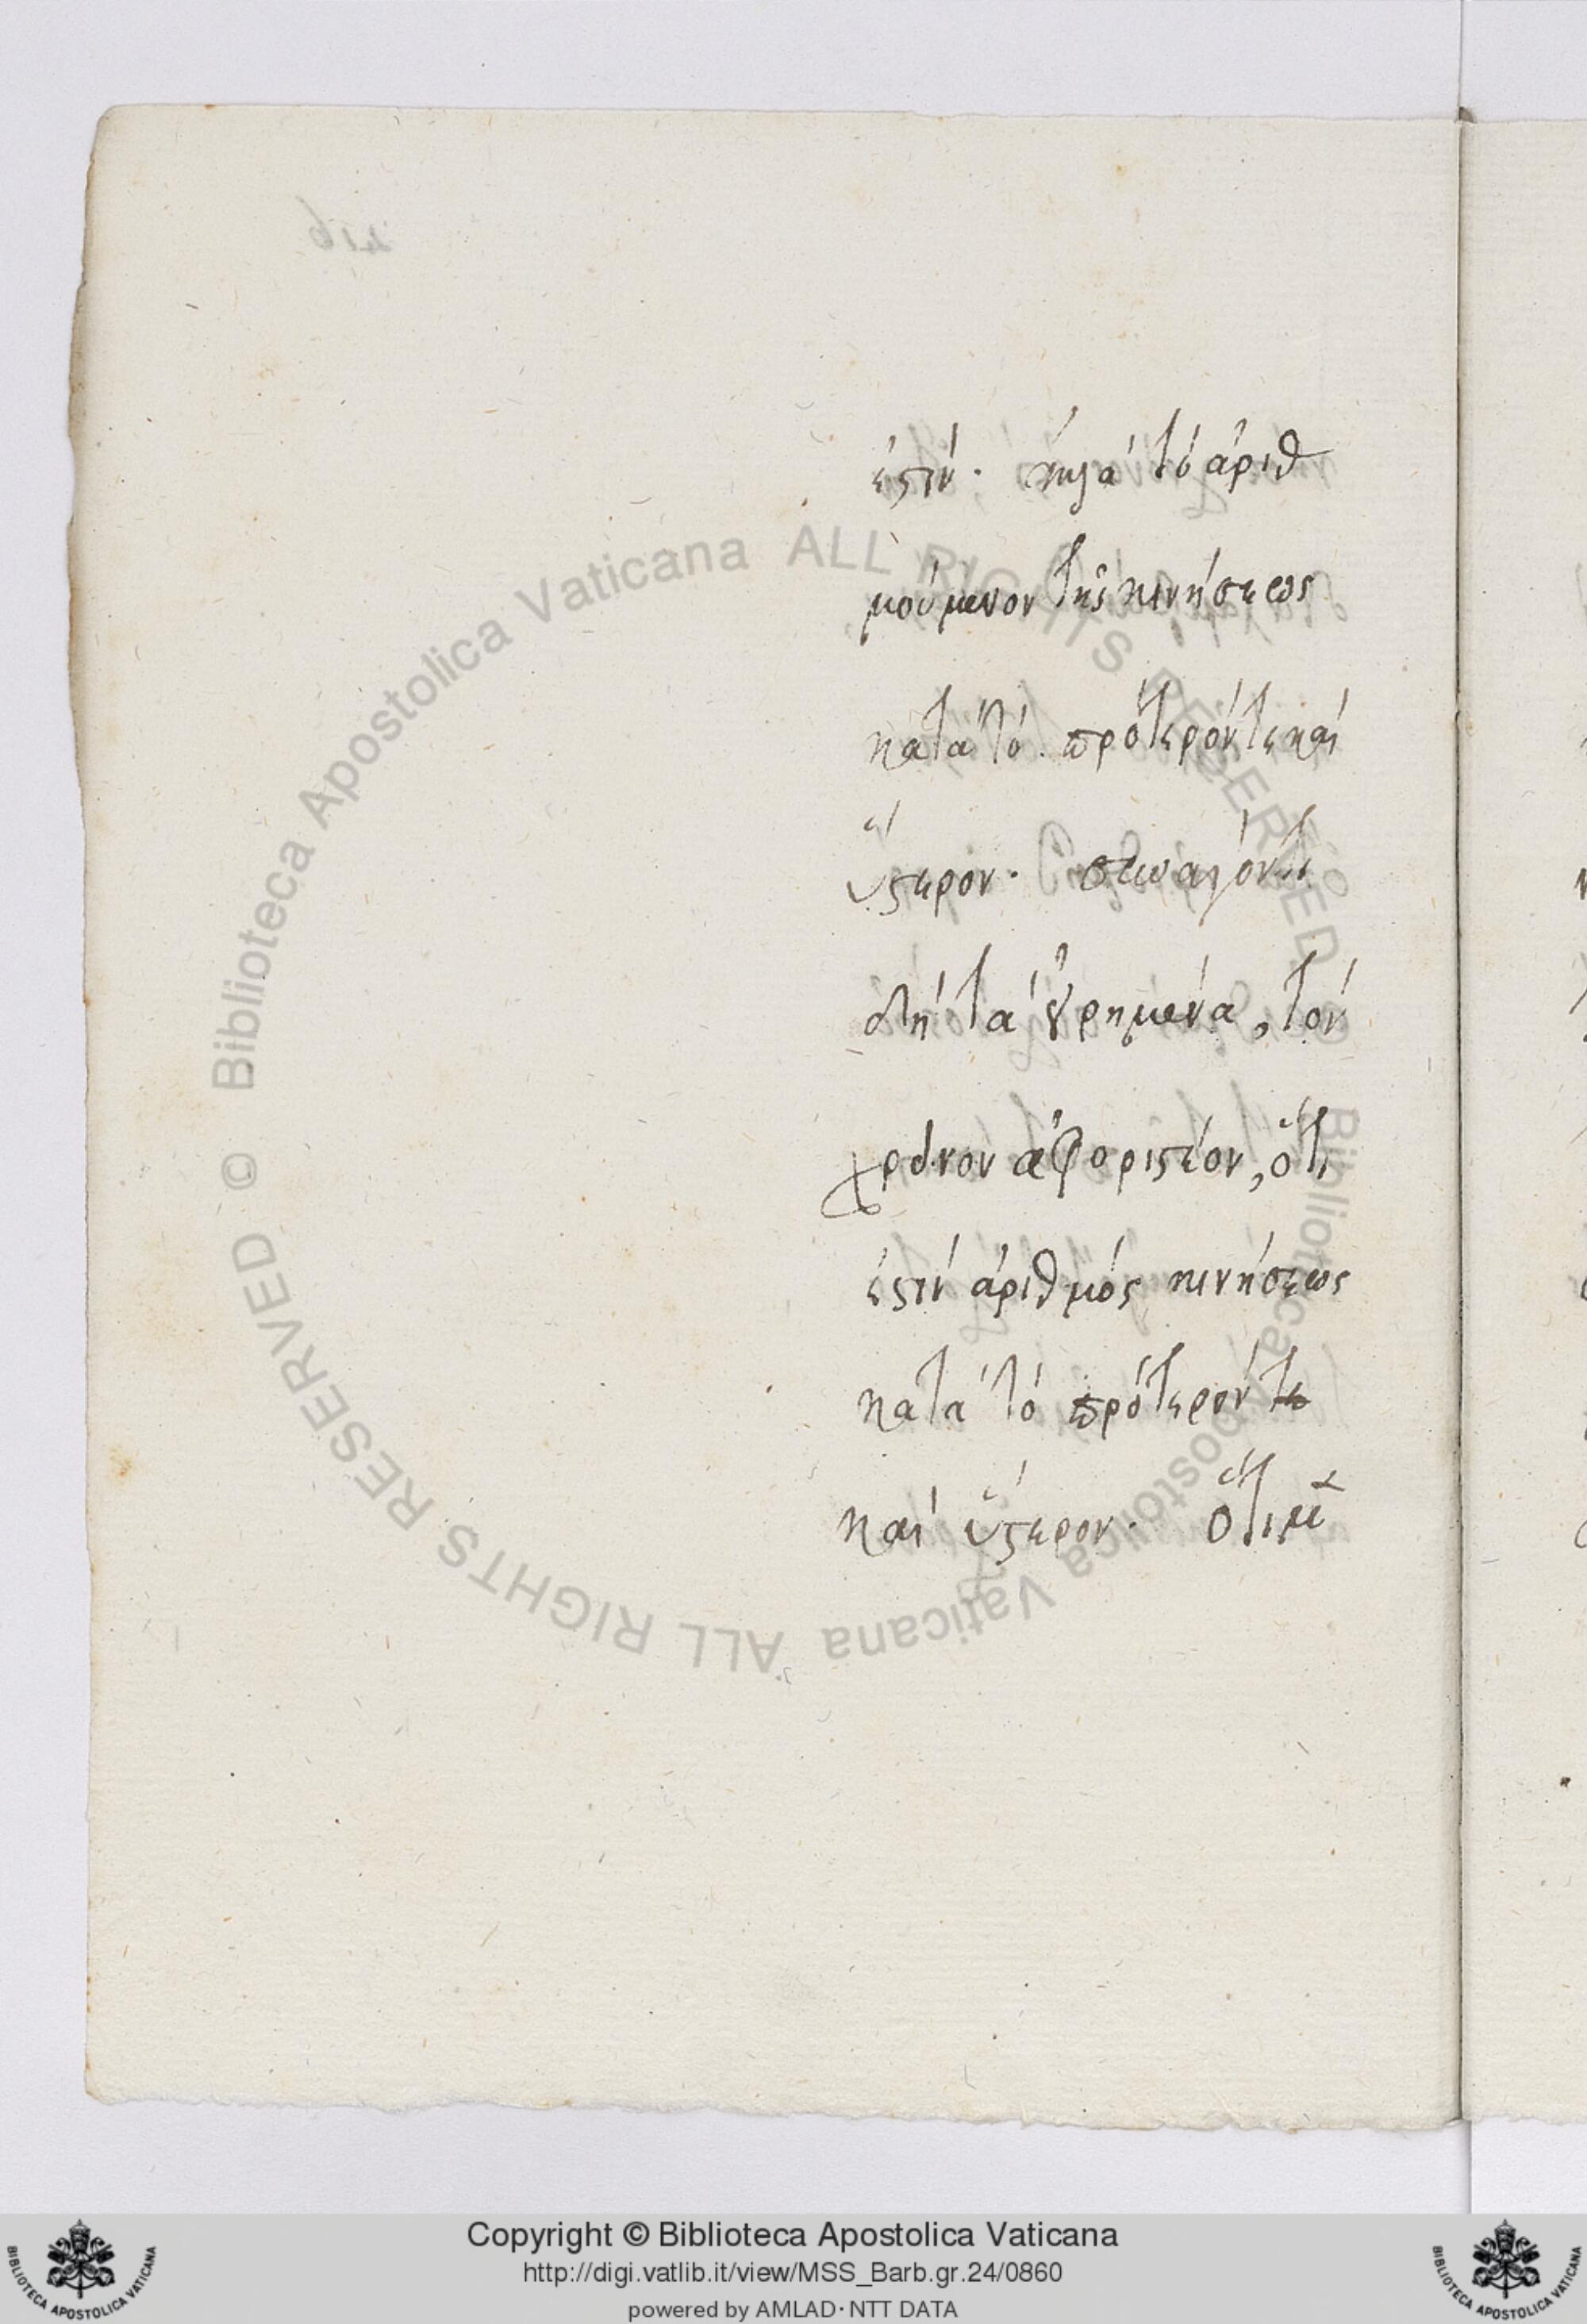 ἐστίν. ἀλλὰ τὸ ἀριθ
μούμενον τῆς κινήσεως
κατὰ τὸ πρότερόν τε καὶ
ὕστερον. συναγόντι
δὴ τὰ εἰρημένα, τὸν
χρόνον ἀφοριστέον, ὅτι
ἐστὶν ἀριθμὸς κινήσεως
κατὰ τὸ πρότερόν τε
καὶ ὕστερον. ὅτι μὲ
Biblioteca Apostolica Vaticana ALL RIGHTS RESERVED ©
Biblioteca Apostolica Vaticana ALL RIGHTS RESERVED ©
Copyright © Biblioteca Apostolica Vaticana
http://digi.vatlib.it/view/MSS_Barb.gr.24/0860
powered by AMLAD·NTT DATA
BIBLIOTECA APOSTOLICA VATICANA
BIBLIOTECA APOSTOLICA VATICANA